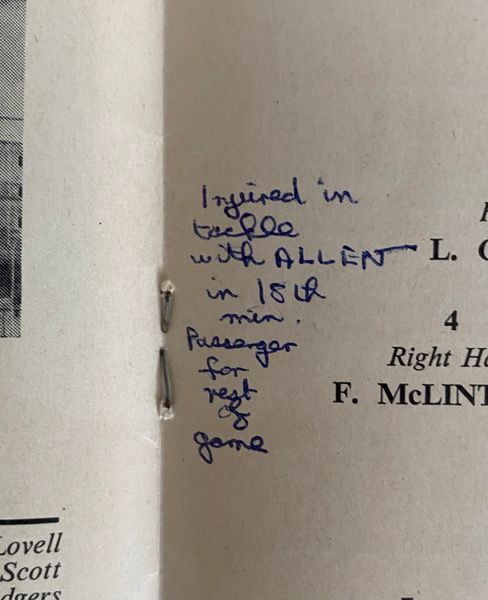 Injured in
tackle
with ALLEN
in 18th
min.
Passenger
for
rest
of
game
L.
4
Right
F. McLINT
Lovell
Scott
dgers